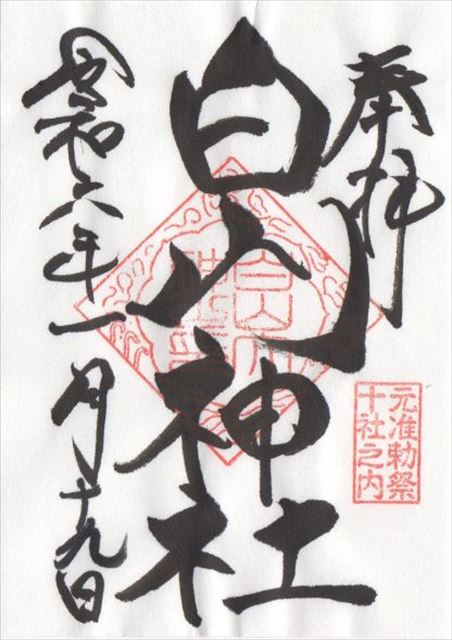 奉拝
白山神社
元准勅祭
十社之内
令和六年一月十九日